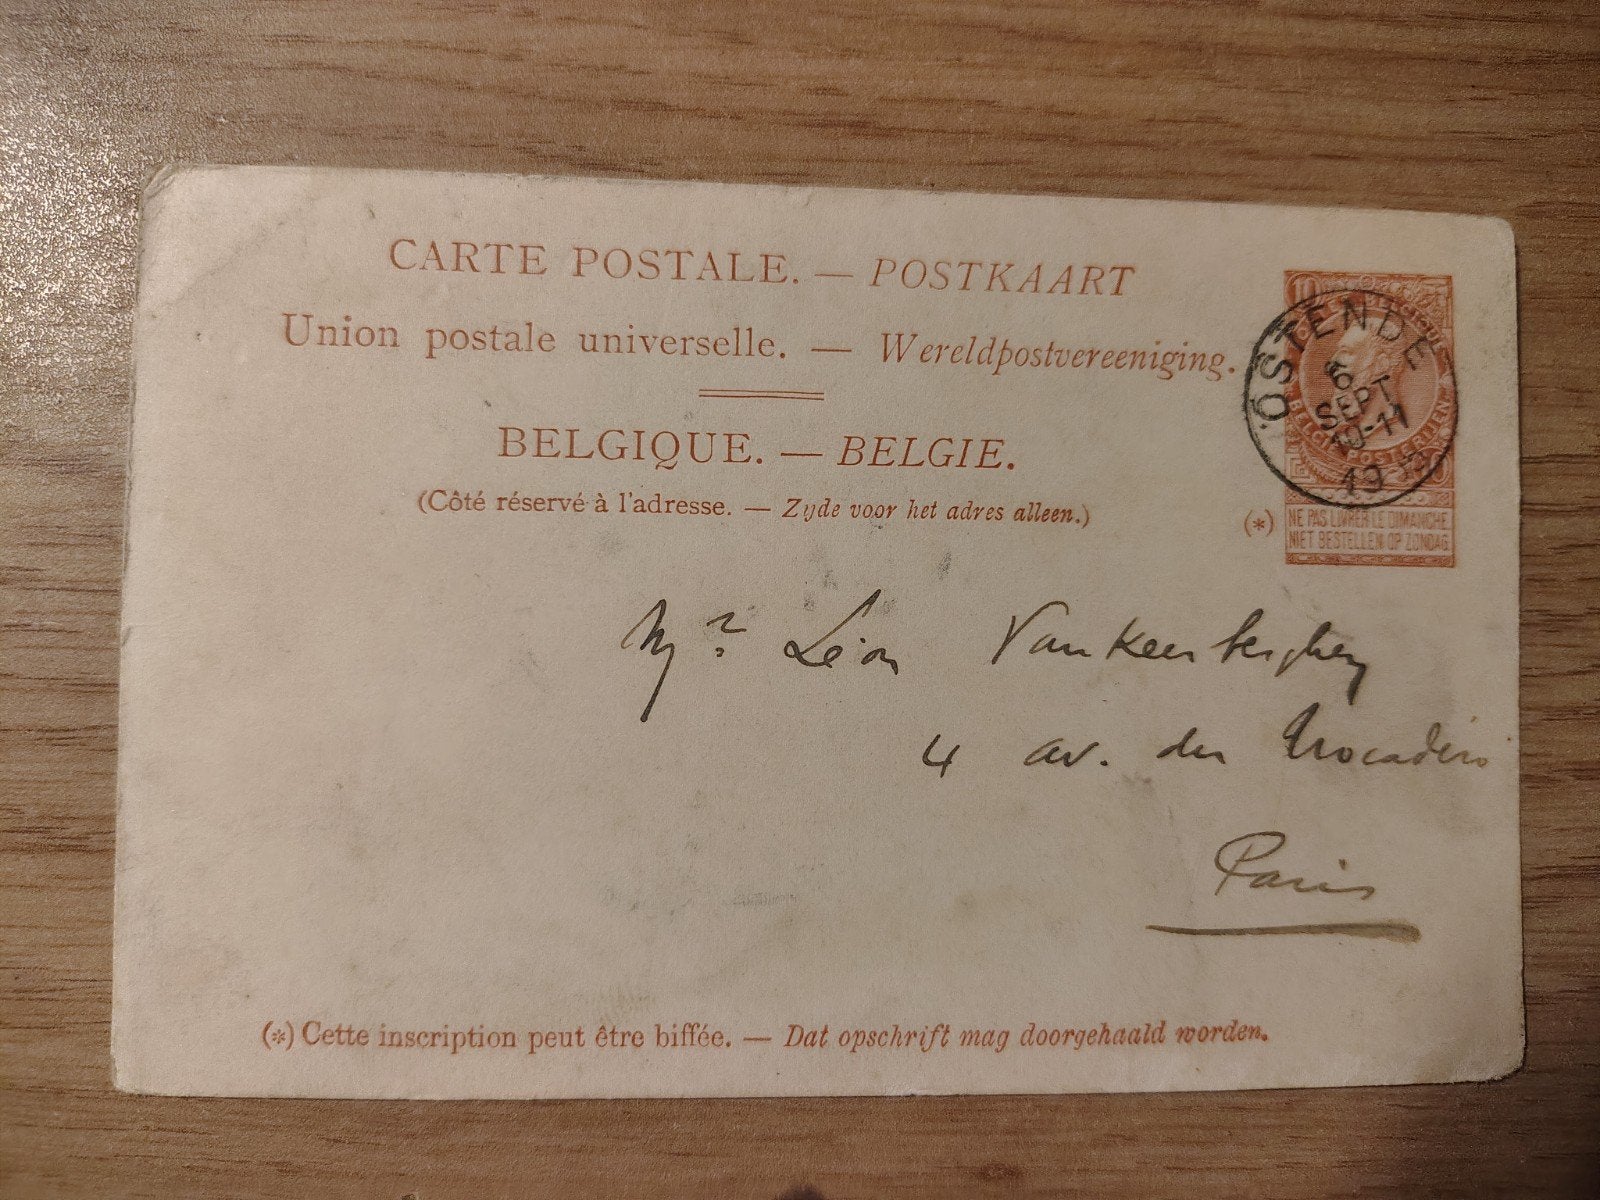 CARTE POSTALE. — POSTKAART
Union postale universelle. — Wereldpostvereeniging.
BELGIQUE. — BELGIE.
(Côté réservé à l'adresse. — Zyde voor het adres alleen.)
10
OSTENDE
6
SEPT
10-11
19
(*)
NE PAS LIVRER LE DIMANCHE
NIET BESTELLEN OP ZONDAG
Mr Léon Vankeerberghen
4 av. du Trocadéro
Paris
(*) Cette inscription peut être biffée. — Dat opschrift mag doorgehaald worden.